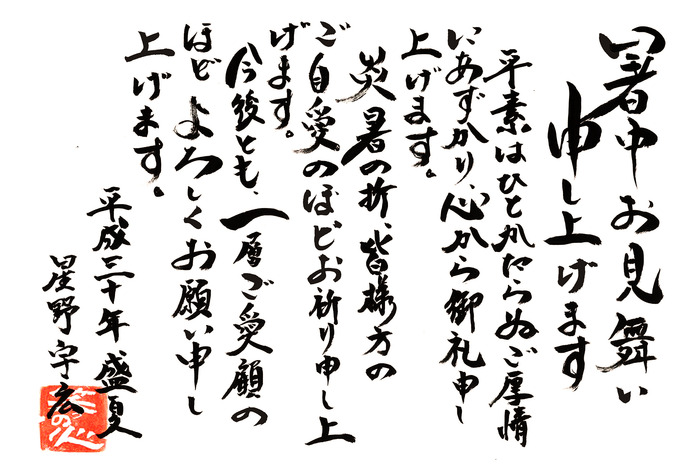 暑中お見舞い
申し上げます
平素はひとかたならぬご厚情
にあずかり、心から御礼申し
上げます。
炎暑の折、皆様方の
ご自愛のほどお祈り申し上
げます。
今後とも、一層ご愛顧の
ほどよろしくお願い申し
上げます。
平成三十年 盛夏
星野宇広